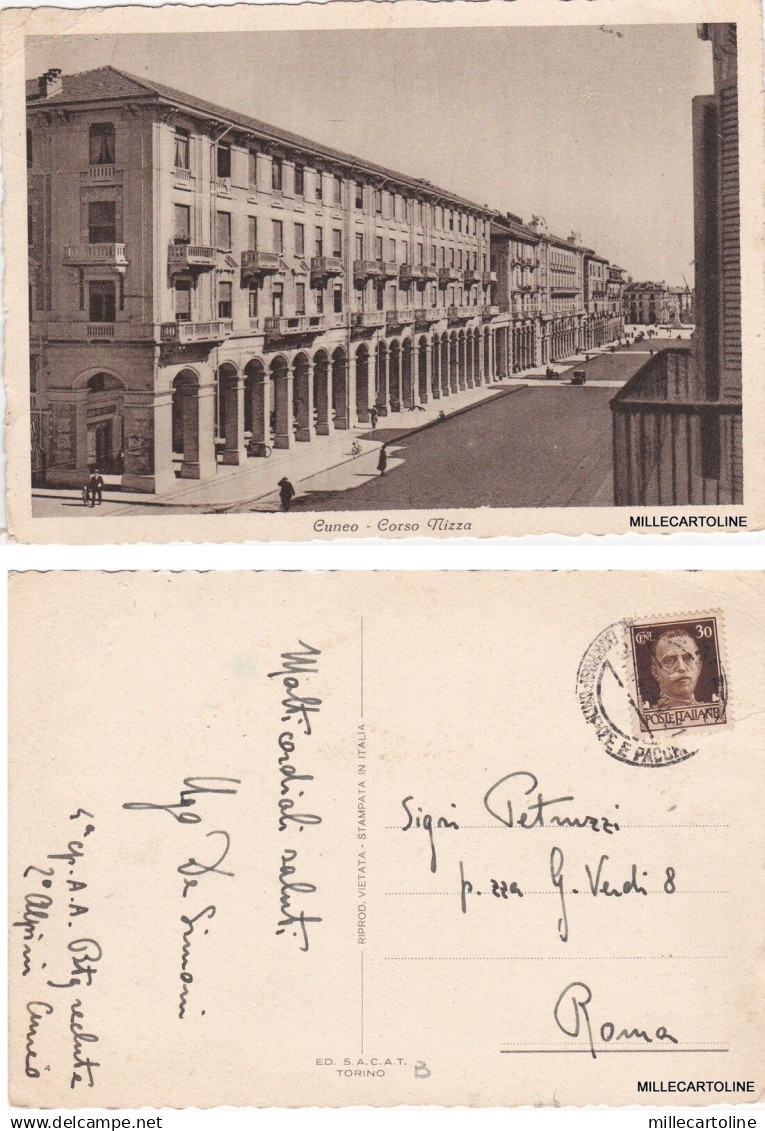 Cuneo - Corso Nizza
MILLECARTOLINE
Molti cordiali saluti
Ugo De Simoni
4ª cp. A.A. Btg reclute
2º Alpini Cuneo
RIPROD. VIETATA - STAMPATA IN ITALIA
CENT. 30
POSTE ITALIANE
E PACCHI
Sigri Petruzzi
p.zza G. Verdi 8
Roma
ED. S.A.C.A.T.
TORINO
B
MILLECARTOLINE
millecartoline
millecartoline